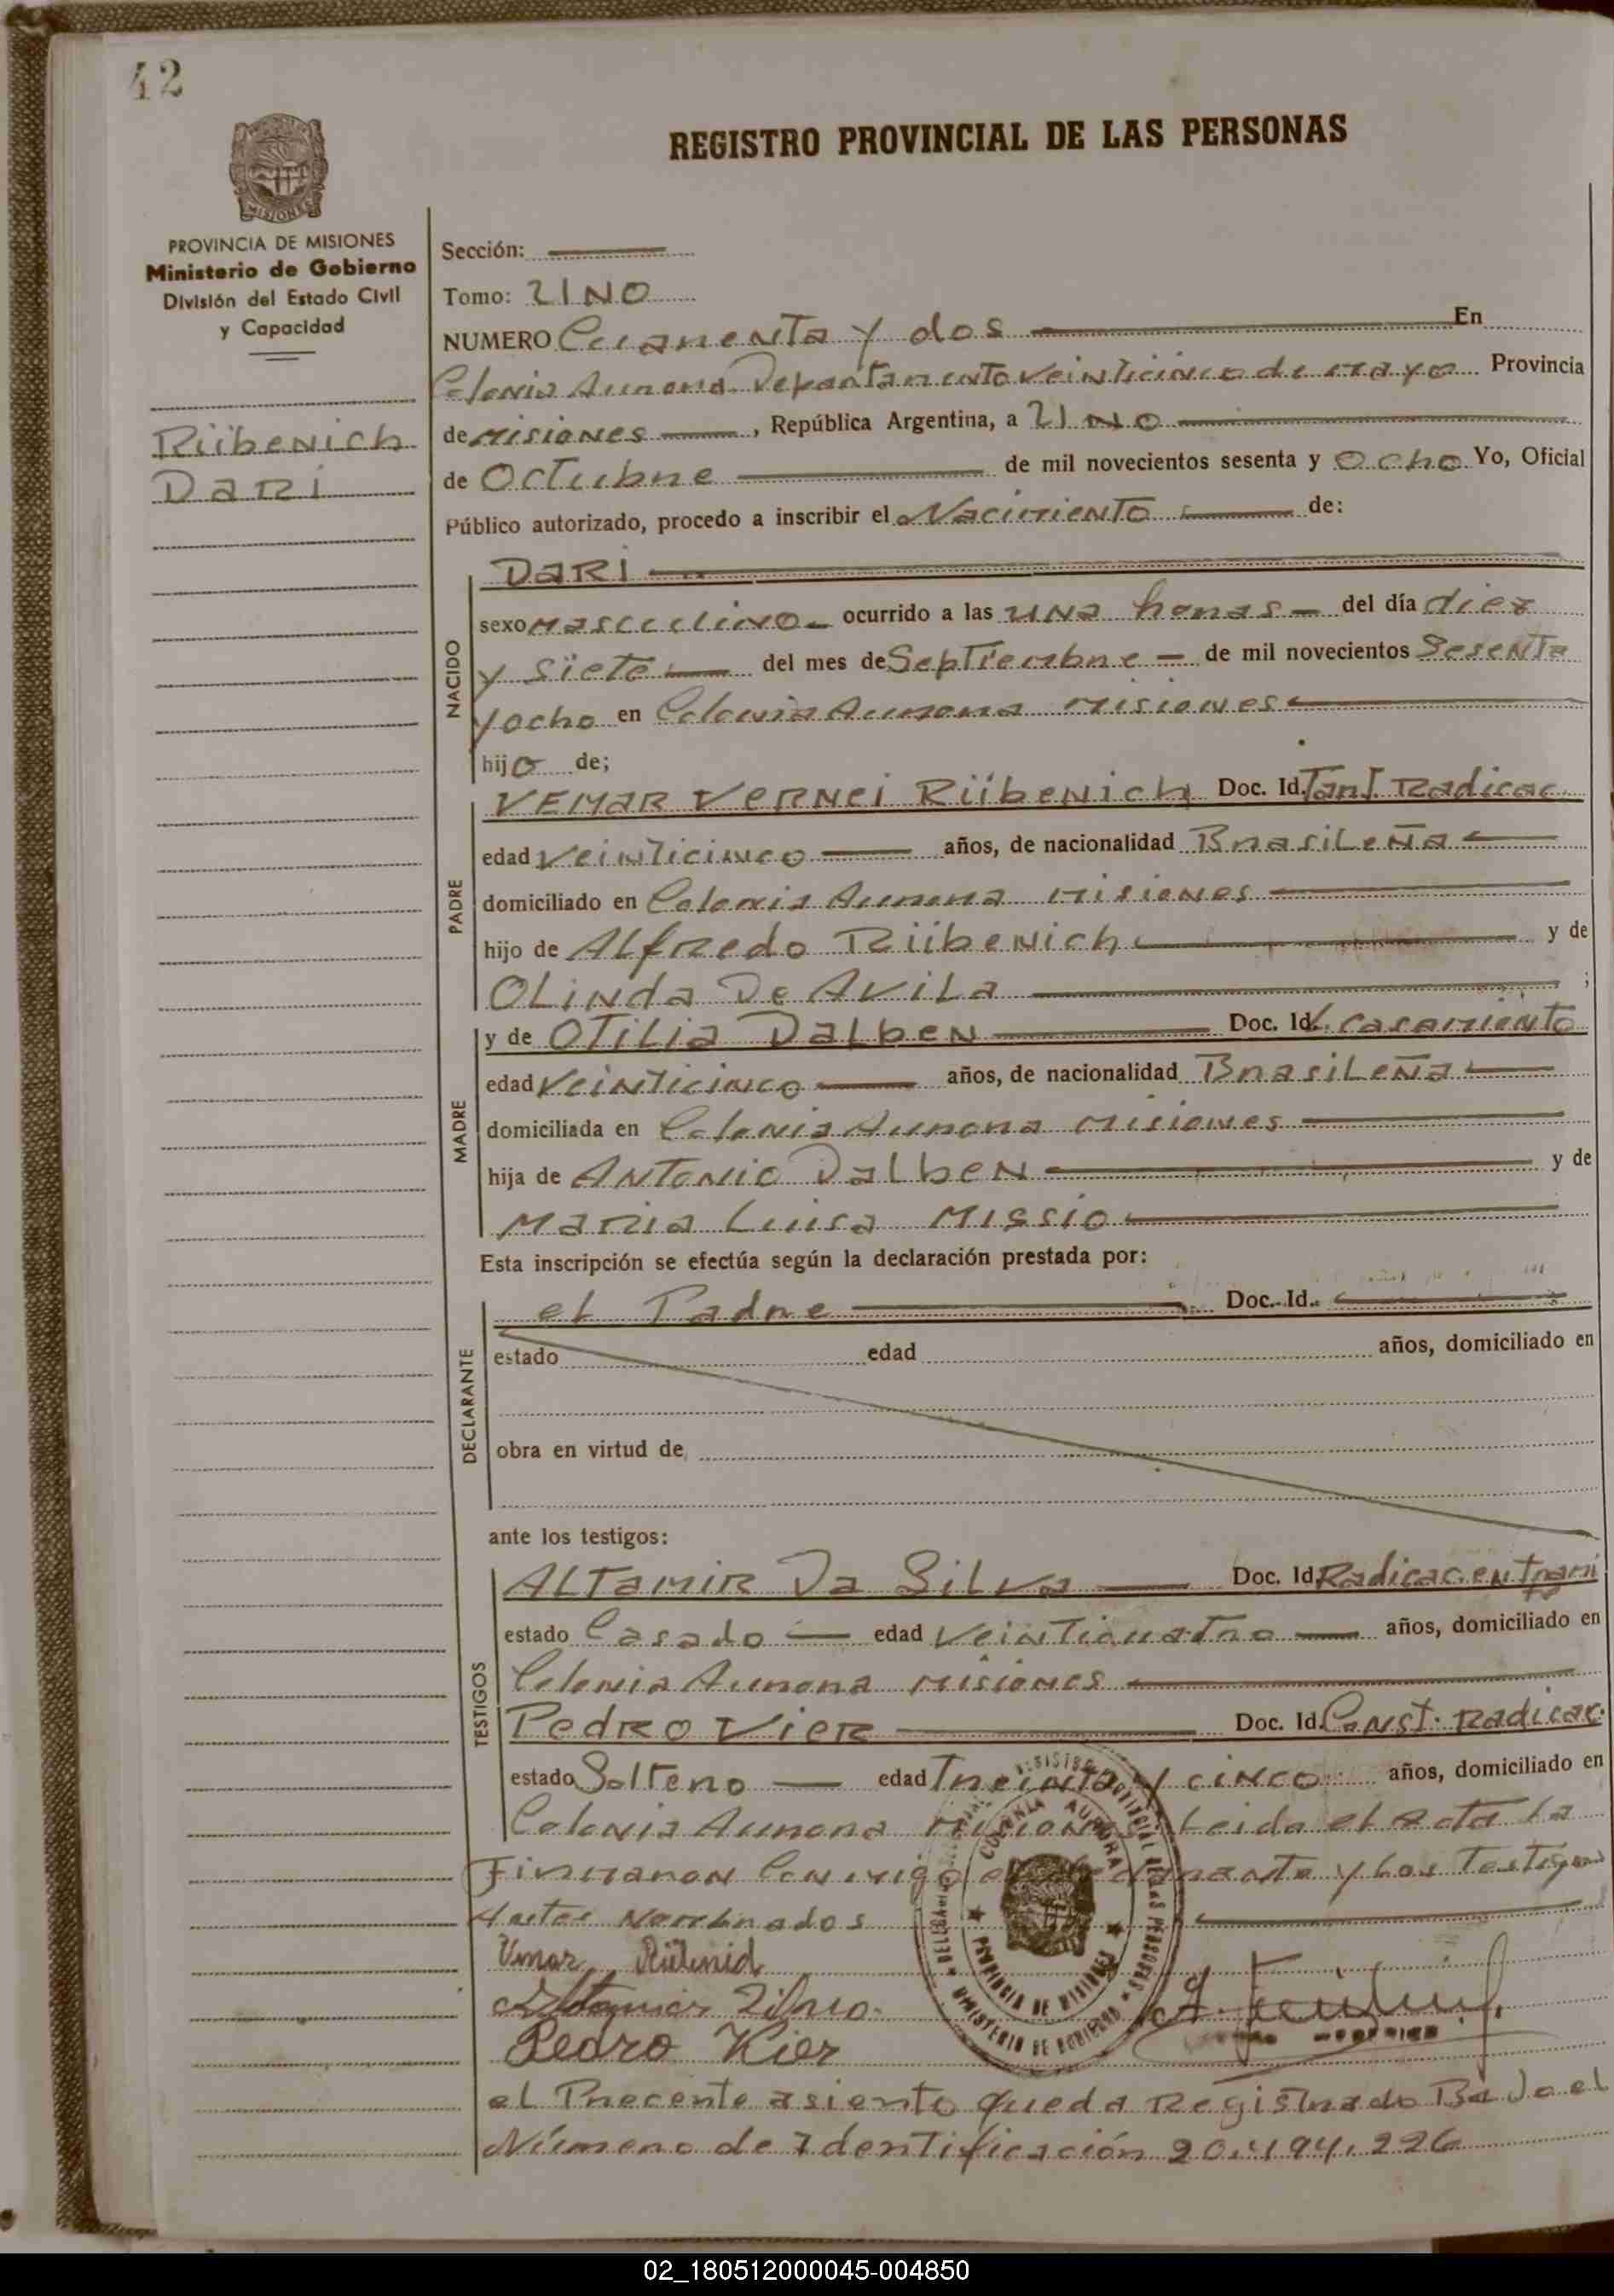 42
REGISTRO PROVINCIAL DE LAS PERSONAS
MISIONES
PROVINCIA DE MISIONES
Ministerio de Gobierno
División del Estado Civil
y Capacidad
Rübenich
Dari
Sección:
Tomo: UNO
NUMERO Cuarenta y dos En
Colonia Aurora Departamento Veinticinco de mayo Provincia
de Misiones, República Argentina, a UNO
de Octubre de mil novecientos sesenta y ocho Yo, Oficial
Público autorizado, procedo a inscribir el Nacimiento de:
NACIDO
DARI
sexo masculino ocurrido a las una horas del día diez
y siete del mes de Septiembre de mil novecientos Sesenta
y ocho en Colonia Aurora Misiones
hijo de;
PADRE
VEMAR VERNEi Rübenich Doc. Id. Radicac.
edad Veinticinco años, de nacionalidad Brasileña
domiciliado en Colonia Aurora Misiones
hijo de Alfredo Rübenich y de
Olinda De Avila ;
MADRE
y de Otilia Dalben Doc. Id. L. casamiento
edad Veinticinco años, de nacionalidad Brasileña
domiciliada en Colonia Aurora Misiones
hija de Antonio Dalben y de
Maria Luisa Missio
Esta inscripción se efectúa según la declaración prestada por:
DECLARANTE
el Padre Doc. Id.
estado edad años, domiciliado en
obra en virtud de
ante los testigos:
TESTIGOS
Altamir Da Silva Doc. Id Radicac. en
estado Casado edad Veinticuatro años, domiciliado en
Colonia Aurora Misiones
Pedro Vier Doc. Id. Const. Radicac.
estado Soltero edad Treinta y cinco años, domiciliado en
Colonia Aurora Misiones Leida el acta la
Firmaron conmigo el declarante y los Testigos
Antes Nombrados
COLONIA AURORA
PROVINCIA DE MISIONES
MINISTERIO DE GOBIERNO
Pedro Vier
el Precente asiento queda Registrado Bajo el
Número de Identificación 20.494.226
02_180512000045-004850